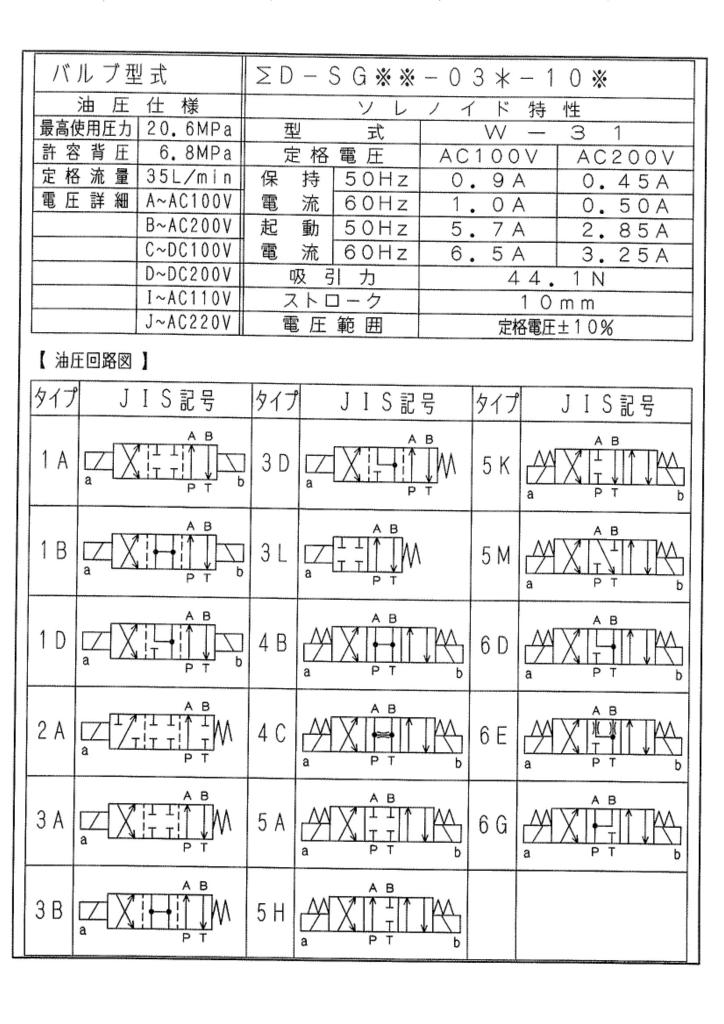 バルブ型式 ΣD-SG※※-03*-10※
油圧仕様 ソレノイド特性
最高使用圧力 20.6MPa 型式 W-31
許容背圧 6.8MPa 定格電圧 AC100V AC200V
定格流量 35L/min 保持 50Hz 0.9A 0.45A
電圧詳細 A~AC100V 電流 60Hz 1.0A 0.50A
B~AC200V 起動 50Hz 5.7A 2.85A
C~DC100V 電流 60Hz 6.5A 3.25A
D~DC200V 吸引力 44.1N
I~AC110V ストローク 10mm
J~AC220V 電圧範囲 定格電圧±10%
【 油圧回路図 】
タイプ JIS記号 タイプ JIS記号 タイプ JIS記号
A B A B A B
1A 3D 5K
a P T b a P T a P T b
A B A B A B
1B 3L 5M
a P T b a P T a P T b
A B A B A B
1D 4B 6D
a P T b a P T b a P T b
A B A B A B
2A 4C 6E
a P T a P T b a P T b
A B A B A B
3A 5A 6G
a P T a P T b a P T b
A B A B
3B 5H
a P T a P T b